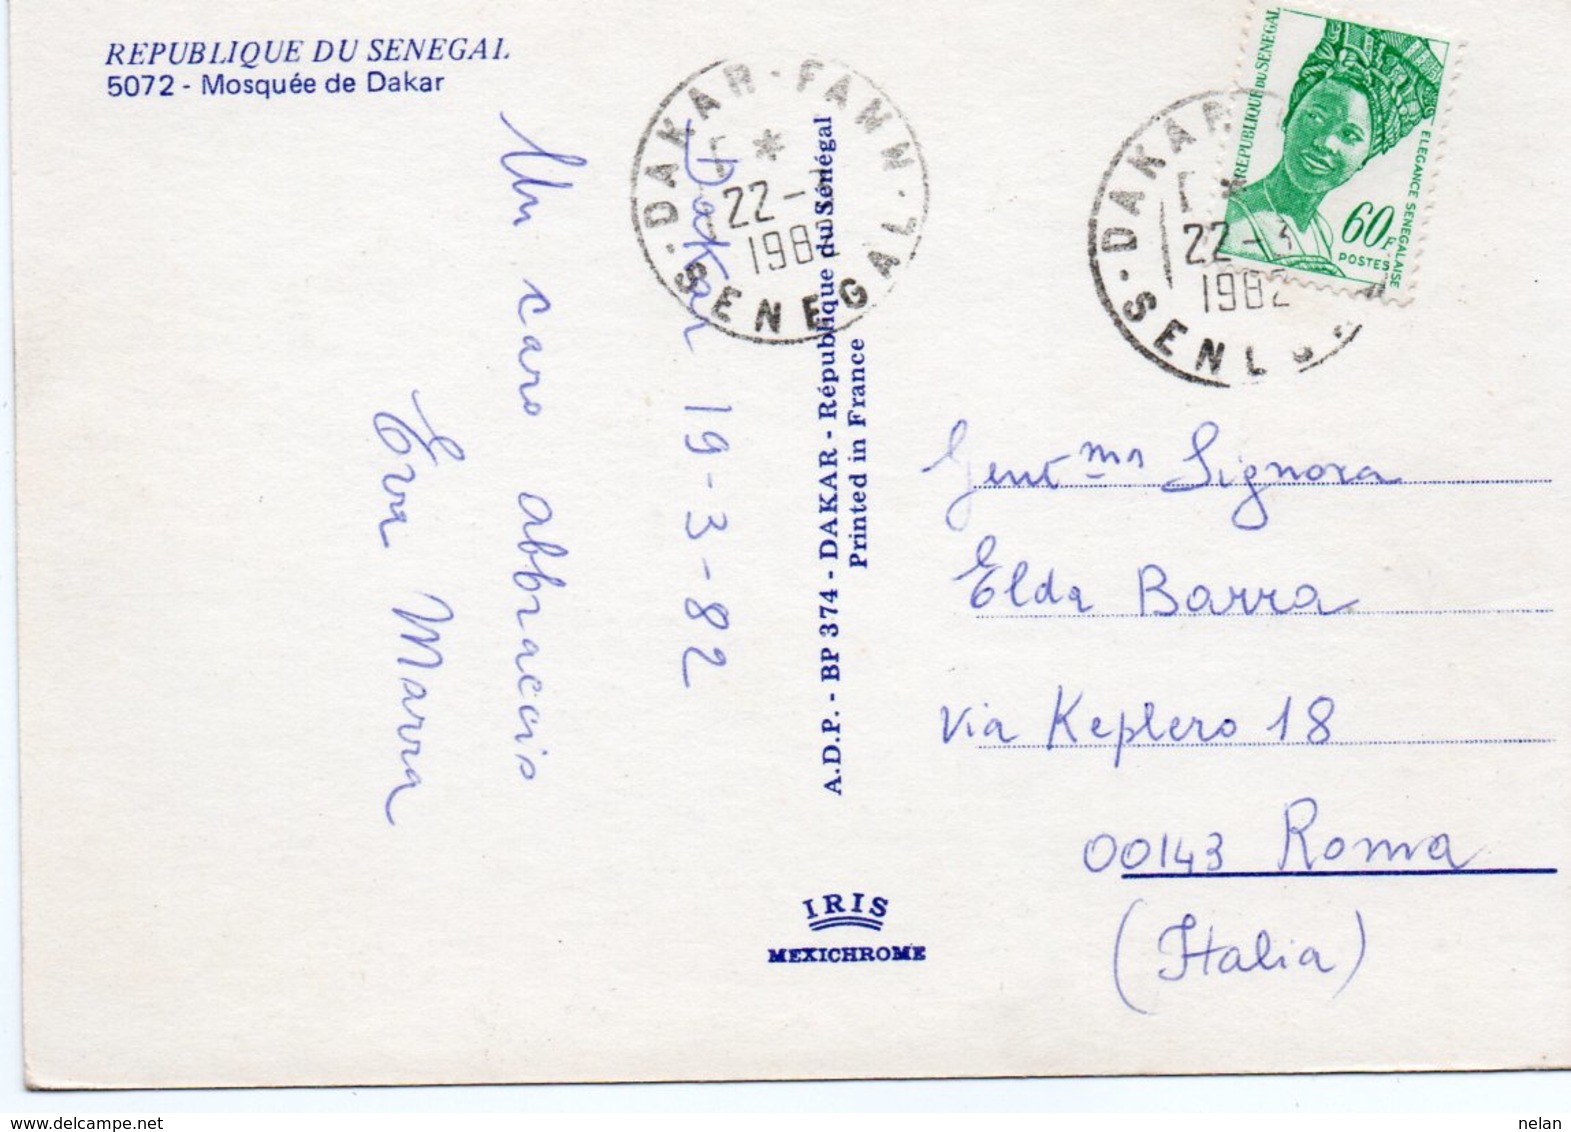 REPUBLIQUE DU SENEGAL
5072 - Mosquée de Dakar
Dakar 19-3-82
Un caro abbraccio
Eva Marra
DAKAR - FANN
*
22-3
1982
SENEGAL
A.D.P. - BP 374 - DAKAR - République du Sénégal
Printed in France
IRIS
MEXICHROME
DAKAR
*
22-3
1982
REPUBLIQUE DU SENEGAL
ELEGANCE SENEGALAISE
60F
POSTES
Gent.ma Signora
Elda Barra
Via Keplero 18
00143 Roma
(Italia)
www.delcampe.net
nelan